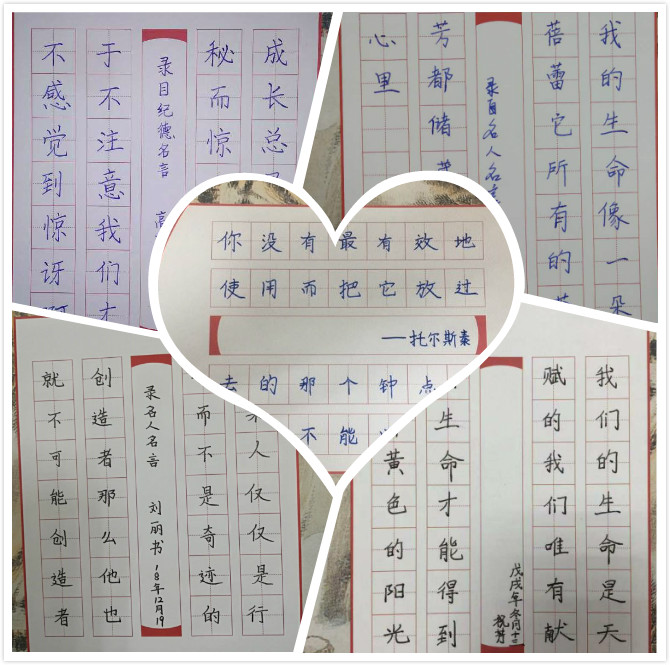 成长总
秘而惊
录目纪德名言
于不注意我们
不感觉到惊讶
我的生命像一朵
蓓蕾它所有的
录自名人名言
芳都储
心里
你没有最有效地
使用而把它放过
——托尔斯泰
去的那个钟点
不能
人仅仅是行
而不是奇迹的
录名人名言 刘丽书 18年12月19
创造者那么他也
就不可能创造者
我们的生命是天
赋的我们唯有献
戊戌年冬月十二
生命才能得到
黄色的阳光